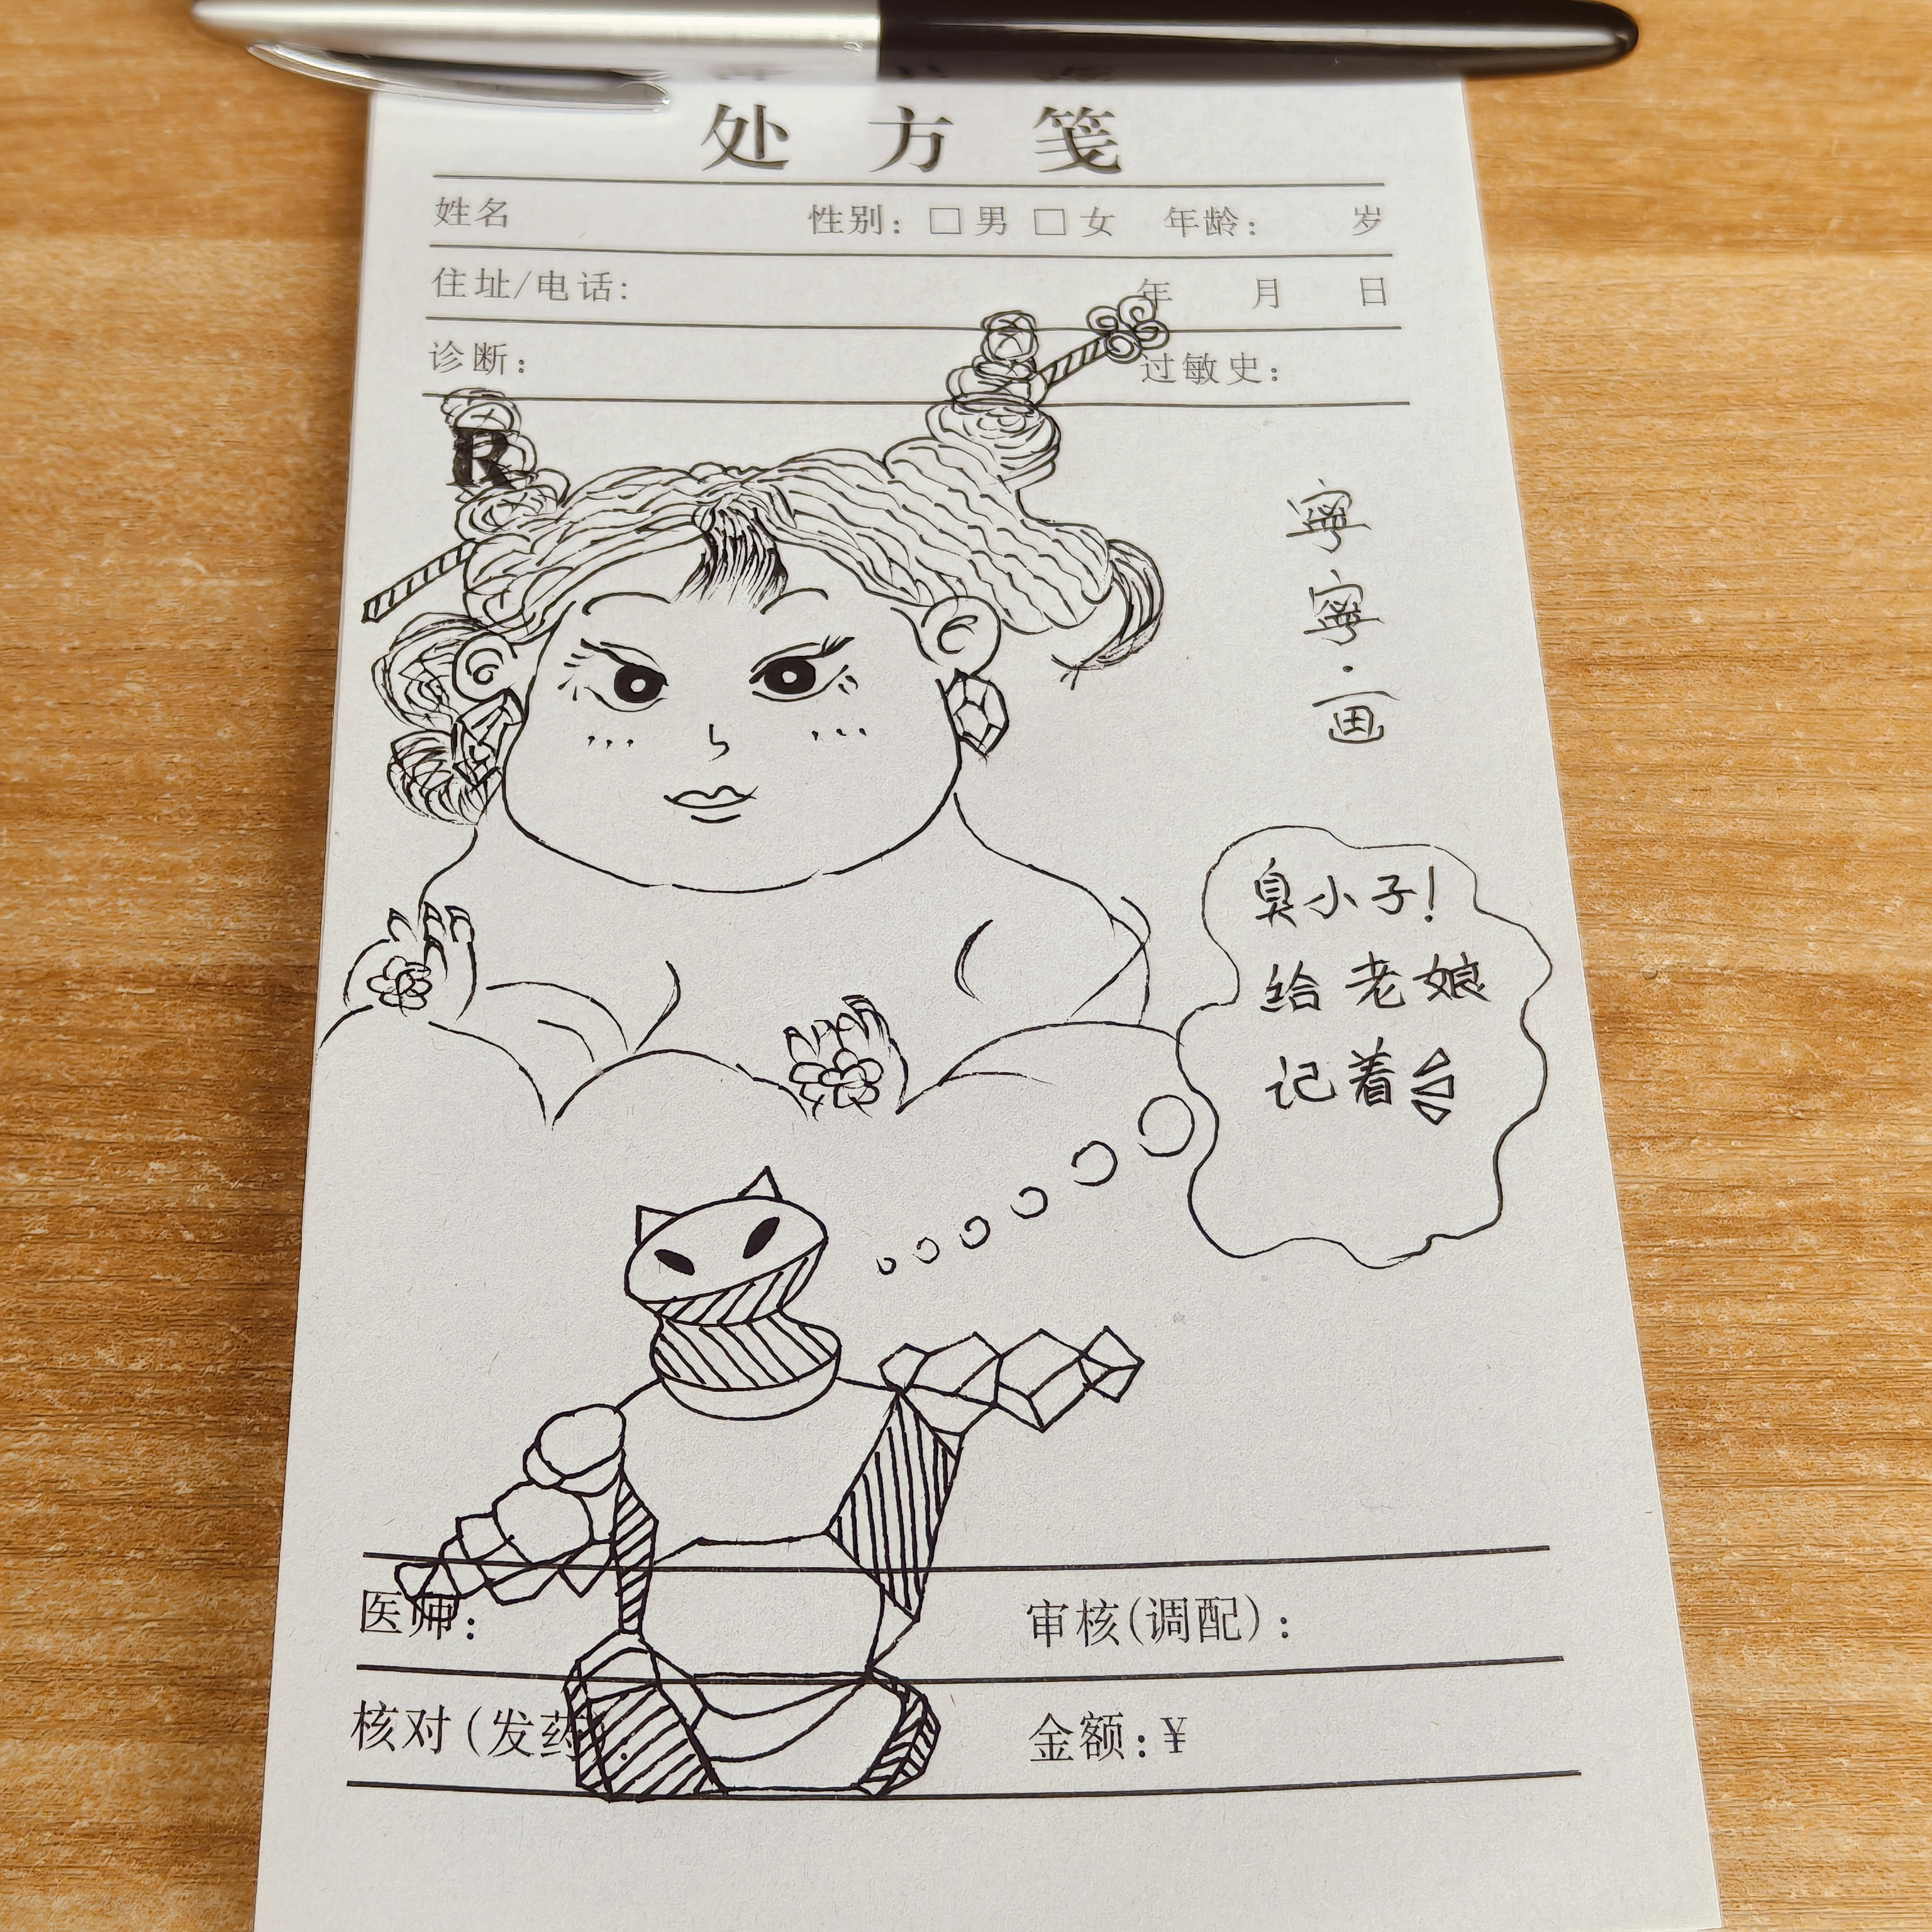 处方笺
姓名 性别：□男 □女 年龄： 岁
住址/电话： 年 月 日
诊断： 过敏史：
R
寧
寧
·
画
臭小子！
给老娘
记着
医师： 审核(调配)：
核对(发药)： 金额：¥